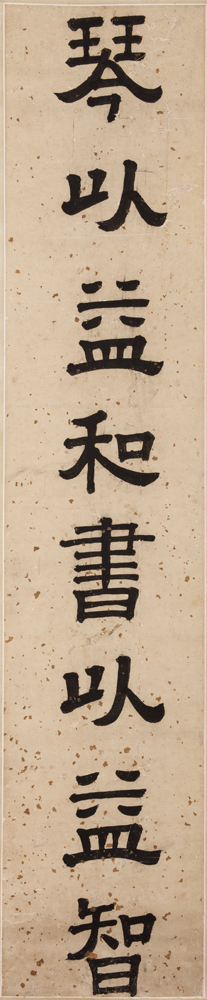 琴以益和書以益智